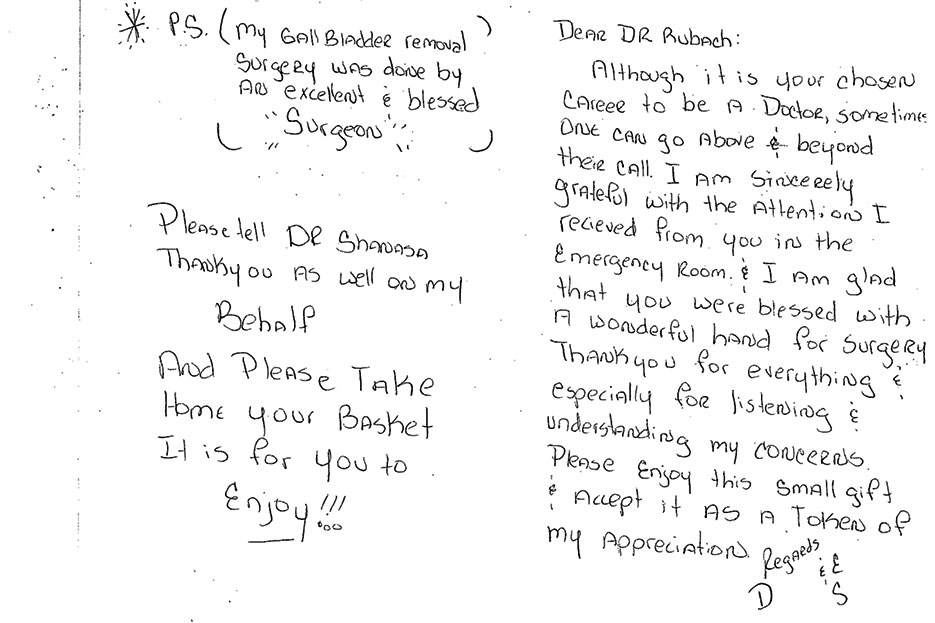 Dear DR Rubach:
Although it is your chosen
career to be A Doctor, sometimes
ONE CAN go Above & beyond
their CAll. I Am sincerely
grateful with the Attention I
recieved from you in the
Emergency Room. & I Am glad
that you were blessed with
A wonderful hand for surgery
Thankyou for everything &
especially for listening &
understanding my concerns.
Please Enjoy this small gift
& Accept it As A Token of
my Appreciation. Regards
D & E
S
* P.S. (my GallBladder removal
Surgery was done by
An excellent & blessed
"Surgeon")
Please tell DR Shanasa
Thankyou As well on my
Behalf
And Please Take
Home your Basket
It is for you to
Enjoy!!!